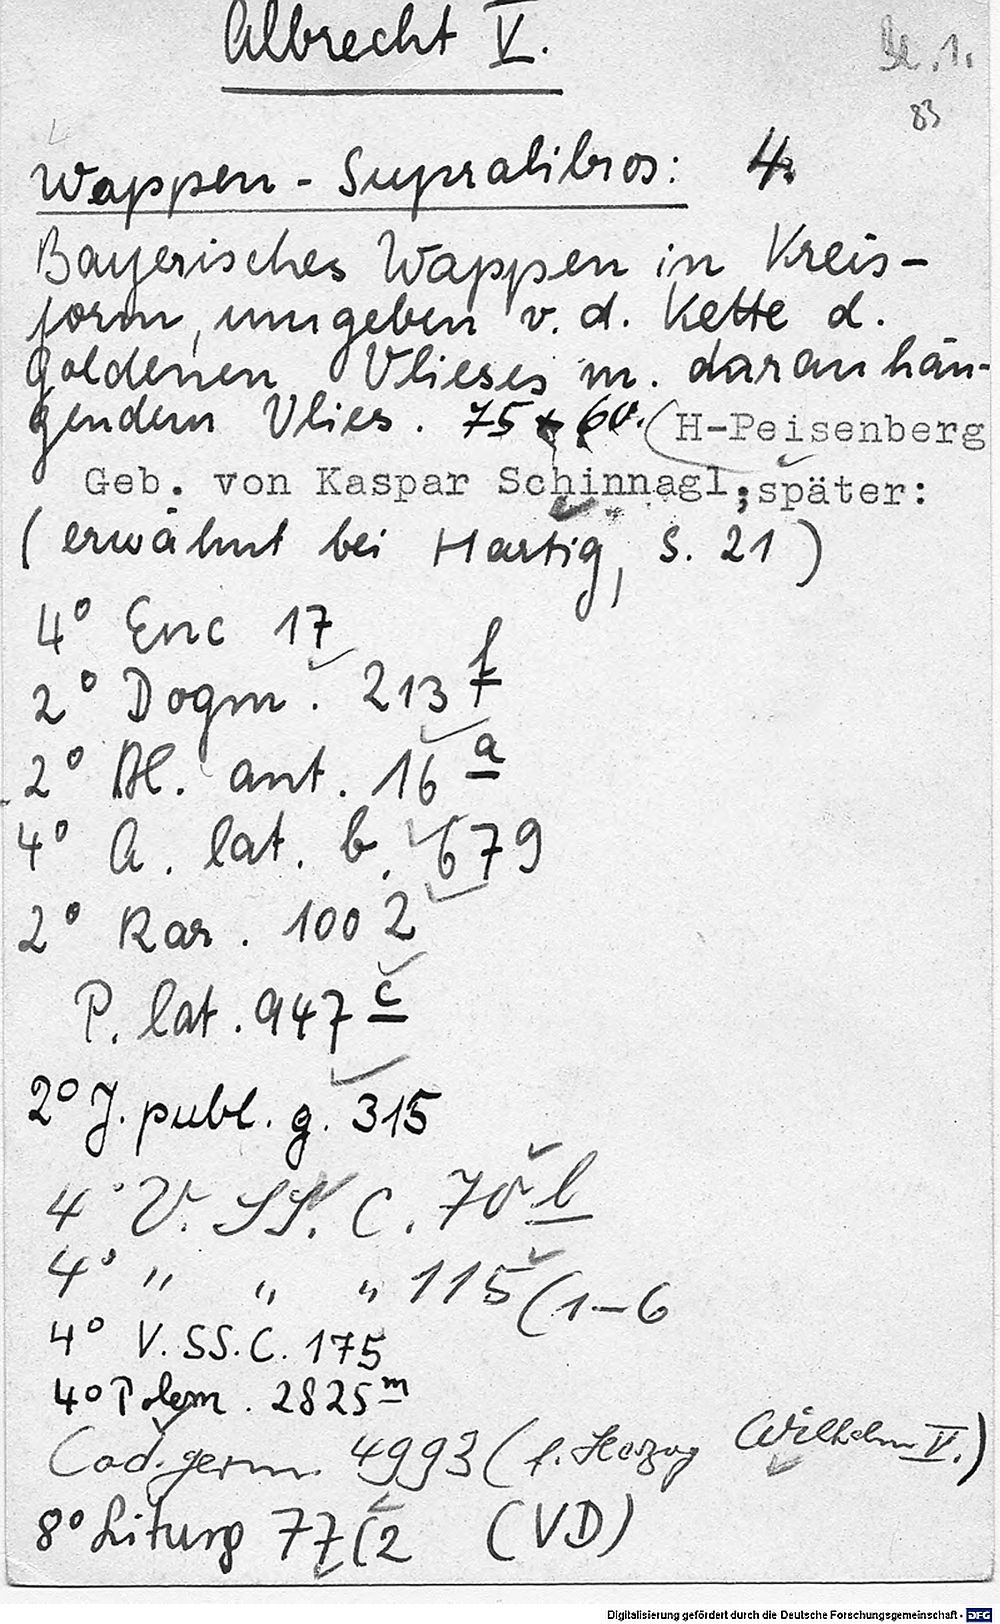 Albrecht V.
Bl. 1.
83
Wappen - Supralibros: 4.
Bayerisches Wappen in Kreis-
form, umgeben v. d. Kette d.
goldenen Vlieses m. daran hän-
gendem Vlies. 75 x 60. (H-Peisenberg
Geb. von Kaspar Schinnagl; später:
(erwähnt bei Hartig, S. 21)
4° Enc 17
2° Dogm. 213 f
2° Bl. ant. 16 a
4° A. lat. b. 679
2° Rar. 1002
P. lat. 947 c
2° J. publ. g. 315
4° V. SS. C. 70 b
4° " " " 115 (1-6
4° V. SS. C. 175
4° Polem. 2825 m
Cod. germ. 4993 (f. Herzog Wilhelm V.)
8° Liturg 77 (2 (VD)
Digitalisierung gefördert durch die Deutsche Forschungsgemeinschaft - DFG